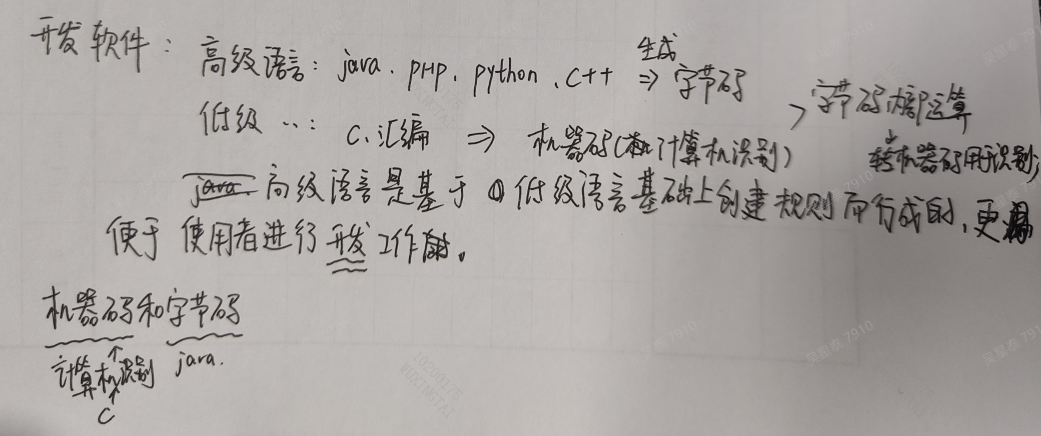 开发软件：高级语言：java．PHP．python．C++ 生成⇒ 字节码
低级〃：C．汇编 ⇒ 机器码(计算机识别)
字节码 运算
转机器码用于识别；
高级语言是基于 低级语言基础上创建规则而行成的，更
便于使用者进行开发工作。
机器码和字节码
计算机识别 java．
C
吴星泰 7910